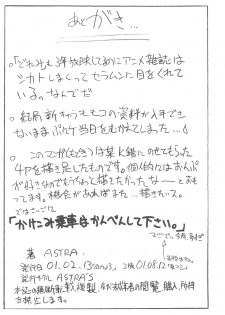 あとがき…
。どれみも3年放映してるのにアニメ雑誌は
シカトしまくってセラムンに目をくれて
いる。なんでだ
。結局新きゃらももこの資料が入手でき
ないままぷにケ当日をむかえてしまった…
。このマンガは某K錯にのせてもらった
4Pを描き足したものです。個人的には
が好きなのでもうちょっと描きたかったなーとおも
ってます。機会があればまた…描きたいス。
ではさいごに
「かけこみ乗車はかんべんして下さい。」
著 ASTRA.
発行日 01.02.13 2版 01.08.12
発行サークル ASTRA'S
本誌の無断転載、複製、及び未成年者の閲覧、購入、所持
を禁止します。